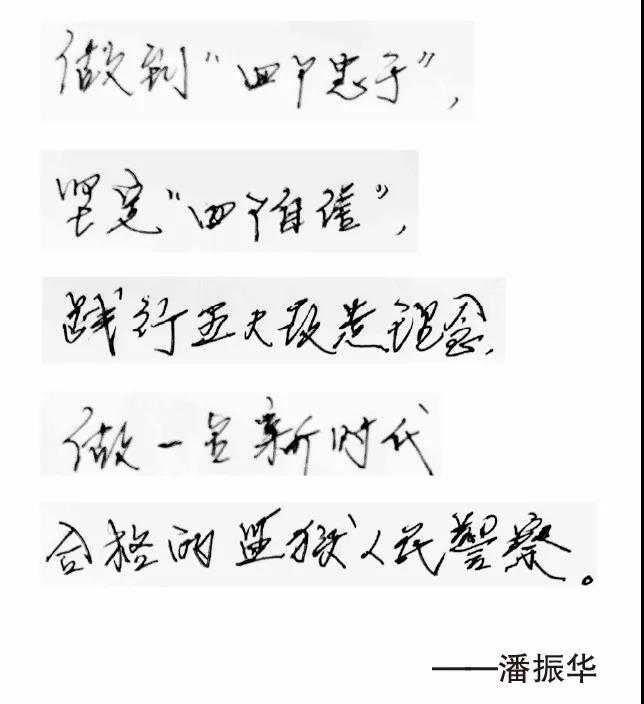 做到“四个忠于”,
坚定“四个自信”,
践行五大改造理念,
做一名新时代
合格的监狱人民警察。
——潘振华